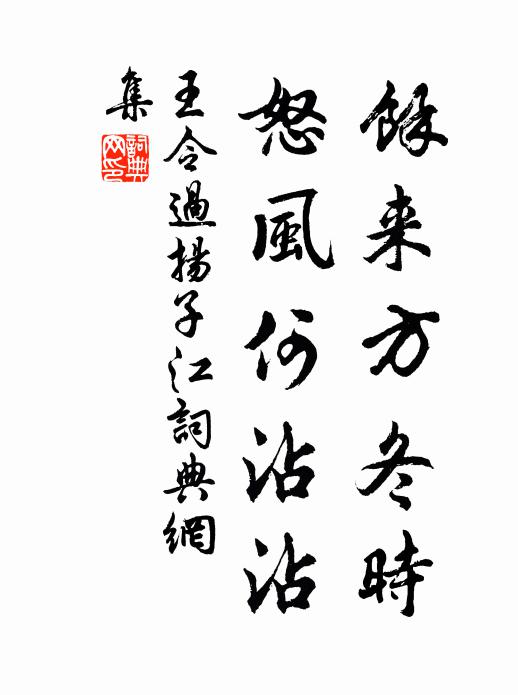 餘来方冬時
怒風何沾沾
王令過揚子江詞典網
集
詞典
网印